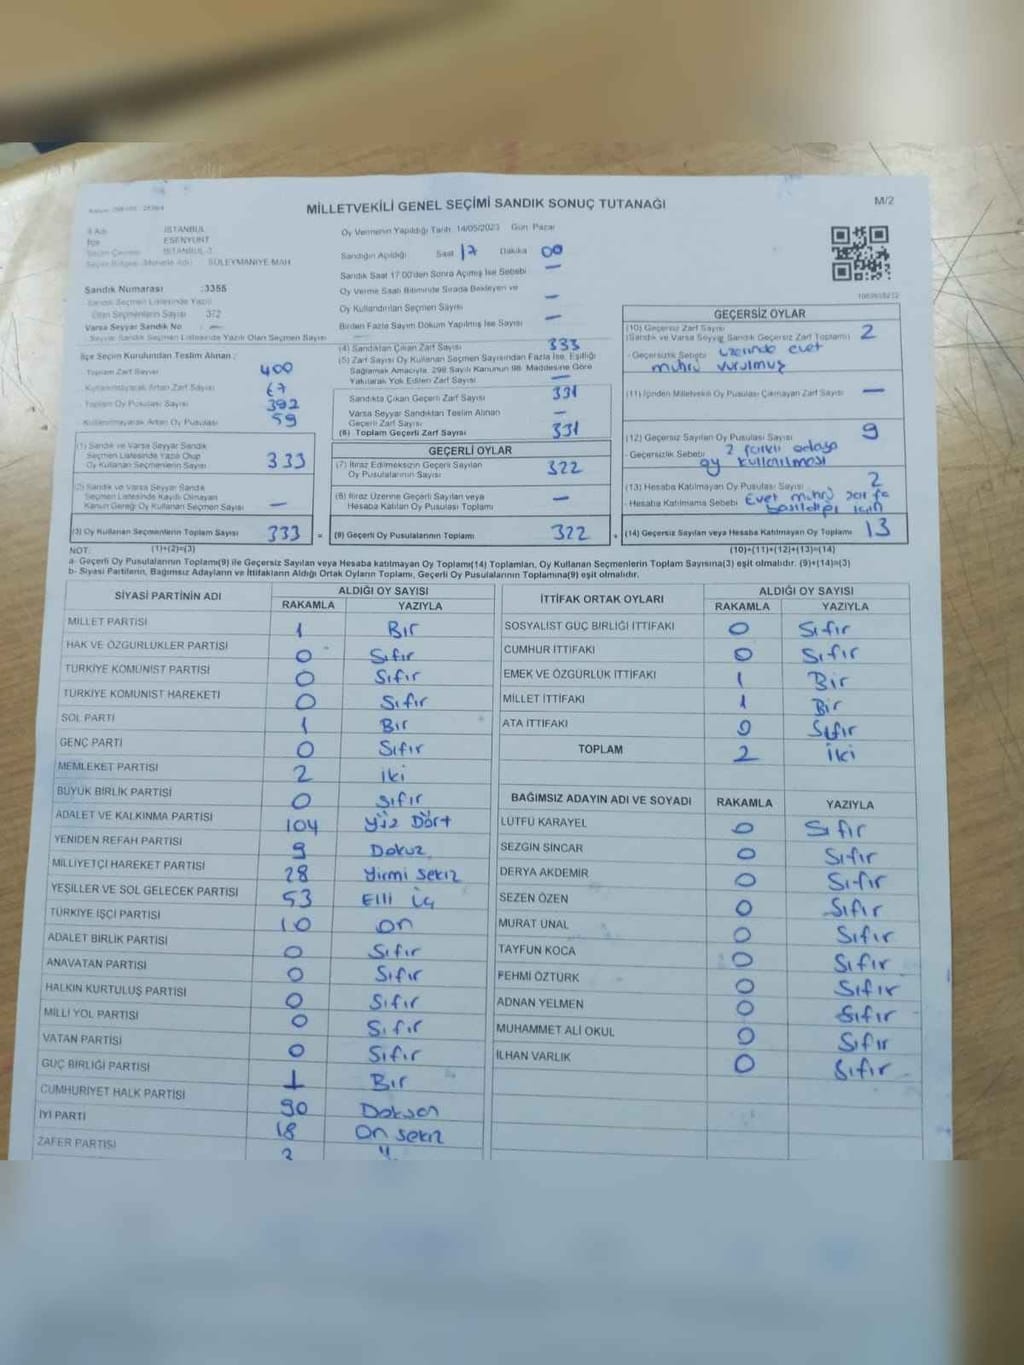 MİLLETVEKİLİ GENEL SEÇİMİ SANDIK SONUÇ TUTANAĞI
M/2
İli Adı İSTANBUL
İlçe ESENYURT
Seçim Çevresi İSTANBUL-3
SÜLEYMANİYE MAH
Sandık Numarası :3355
Sandık Seçmen Listesinde Yazılı
Olan Seçmenlerin Sayısı 372
Varsa Seyyar Sandık No —
Seyyar Sandık Seçmen Listesinde Yazılı Olan Seçmen Sayısı
Oy Vermenin Yapıldığı Tarih 14/05/2023 Gün Pazar
Sandığın Açıldığı Saat 17 Dakika 00
Sandık Saat 17:00'den Sonra Açılmış İse Sebebi —
Oy Verme Saati Bitiminde Sırada Bekleyen ve
Oy Kullandırılan Seçmen Sayısı —
Birden Fazla Sayım Döküm Yapılmış İse Sayısı —
İlçe Seçim Kurulundan Teslim Alınan :
Toplam Zarf Sayısı 400
Kullanılmayarak Artan Zarf Sayısı 67
Toplam Oy Pusulası Sayısı 392
Kullanılmayarak Artan Oy Pusulası 59
(1) Sandık ve Varsa Seyyar Sandık
Seçmen Listesinde Yazılı Olup
Oy Kullanan Seçmenlerin Sayısı 333
(2) Sandık ve Varsa Seyyar Sandık
Seçmen Listesinde Kayıtlı Olmayan
Kanun Gereği Oy Kullanan Seçmen Sayısı —
(3) Oy Kullanan Seçmenlerin Toplam Sayısı 333 =
(4) Sandıktan Çıkan Zarf Sayısı 333
(5) Zarf Sayısı Oy Kullanan Seçmen Sayısından Fazla İse, Eşitliği
Sağlamak Amacıyla, 298 Sayılı Kanunun 98. Maddesine Göre
Yakılarak Yok Edilen Zarf Sayısı —
Sandıkta Çıkan Geçerli Zarf Sayısı 331
Varsa Seyyar Sandıktan Teslim Alınan
Geçerli Zarf Sayısı —
(6) Toplam Geçerli Zarf Sayısı 331
GEÇERLİ OYLAR
(7) İtiraz Edilmeksizin Geçerli Sayılan
Oy Pusulalarının Sayısı 322
(8) İtiraz Üzerine Geçerli Sayılan veya
Hesaba Katılan Oy Pusulası Toplamı —
(9) Geçerli Oy Pusulalarının Toplamı 322 +
1003658212
GEÇERSİZ OYLAR
(10) Geçersiz Zarf Sayısı
(Sandık ve Varsa Seyyar Sandık Geçersiz Zarf Toplamı) 2
- Geçersizlik Sebebi üzerinde evet
mührü vurulmuş
(11) İçinden Milletvekili Oy Pusulası Çıkmayan Zarf Sayısı —
(12) Geçersiz Sayılan Oy Pusulası Sayısı 9
- Geçersizlik Sebebi 2 farklı adaya
oy kullanılması
(13) Hesaba Katılmayan Oy Pusulası Sayısı 2
- Hesaba Katılmama Sebebi Evet mührü
basıldığı için
(14) Geçersiz Sayılan veya Hesaba Katılmayan Oy Toplamı 13
NOT: (1)+(2)=(3) (10)+(11)+(12)+(13)=(14)
a- Geçerli Oy Pusulalarının Toplamı(9) ile Geçersiz Sayılan veya Hesaba katılmayan Oy Toplamı(14) Toplamları, Oy Kullanan Seçmenlerin Toplam Sayısına(3) eşit olmalıdır. (9)+(14)=(3)
b- Siyasi Partilerin, Bağımsız Adayların ve İttifakların Aldığı Ortak Oyların Toplamı, Geçerli Oy Pusulalarının Toplamına(9) eşit olmalıdır.
SİYASİ PARTİNİN ADI ALDIĞI OY SAYISI
RAKAMLA YAZIYLA
MİLLET PARTİSİ 1 Bir
HAK VE ÖZGÜRLÜKLER PARTİSİ 0 Sıfır
TÜRKİYE KOMÜNİST PARTİSİ 0 Sıfır
TÜRKİYE KOMÜNİST HAREKETİ 0 Sıfır
SOL PARTİ 1 Bir
GENÇ PARTİ 0 Sıfır
MEMLEKET PARTİSİ 2 iki
BÜYÜK BİRLİK PARTİSİ 0 Sıfır
ADALET VE KALKINMA PARTİSİ 104 Yüz Dört
YENİDEN REFAH PARTİSİ 9 Dokuz
MİLLİYETÇİ HAREKET PARTİSİ 28 Yirmi Sekiz
YEŞİLLER VE SOL GELECEK PARTİSİ 53 Elli üç
TÜRKİYE İŞÇİ PARTİSİ 10 on
ADALET BİRLİK PARTİSİ 0 Sıfır
ANAVATAN PARTİSİ 0 Sıfır
HALKIN KURTULUŞ PARTİSİ 0 Sıfır
MİLLİ YOL PARTİSİ 0 Sıfır
VATAN PARTİSİ 0 Sıfır
GÜÇ BİRLİĞİ PARTİSİ 1 Bir
CUMHURİYET HALK PARTİSİ 90 Doksan
İYİ PARTİ 18 On sekiz
ZAFER PARTİSİ 2
İTTİFAK ORTAK OYLARI ALDIĞI OY SAYISI
RAKAMLA YAZIYLA
SOSYALİST GÜÇ BİRLİĞİ İTTİFAKI 0 Sıfır
CUMHUR İTTİFAKI 0 Sıfır
EMEK VE ÖZGÜRLÜK İTTİFAKI 1 Bir
MİLLET İTTİFAKI 1 Bir
ATA İTTİFAKI 0 Sıfır
TOPLAM 2 iki
BAĞIMSIZ ADAYIN ADI VE SOYADI RAKAMLA YAZIYLA
LÜTFÜ KARAYEL 0 Sıfır
SEZGİN SİNCAR 0 Sıfır
DERYA AKDEMİR 0 Sıfır
SEZEN ÖZEN 0 Sıfır
MURAT ÜNAL 0 Sıfır
TAYFUN KOCA 0 Sıfır
FEHMİ ÖZTÜRK 0 Sıfır
ADNAN YELMEN 0 Sıfır
MUHAMMET ALİ OKUL 0 Sıfır
İLHAN VARLIK 0 Sıfır